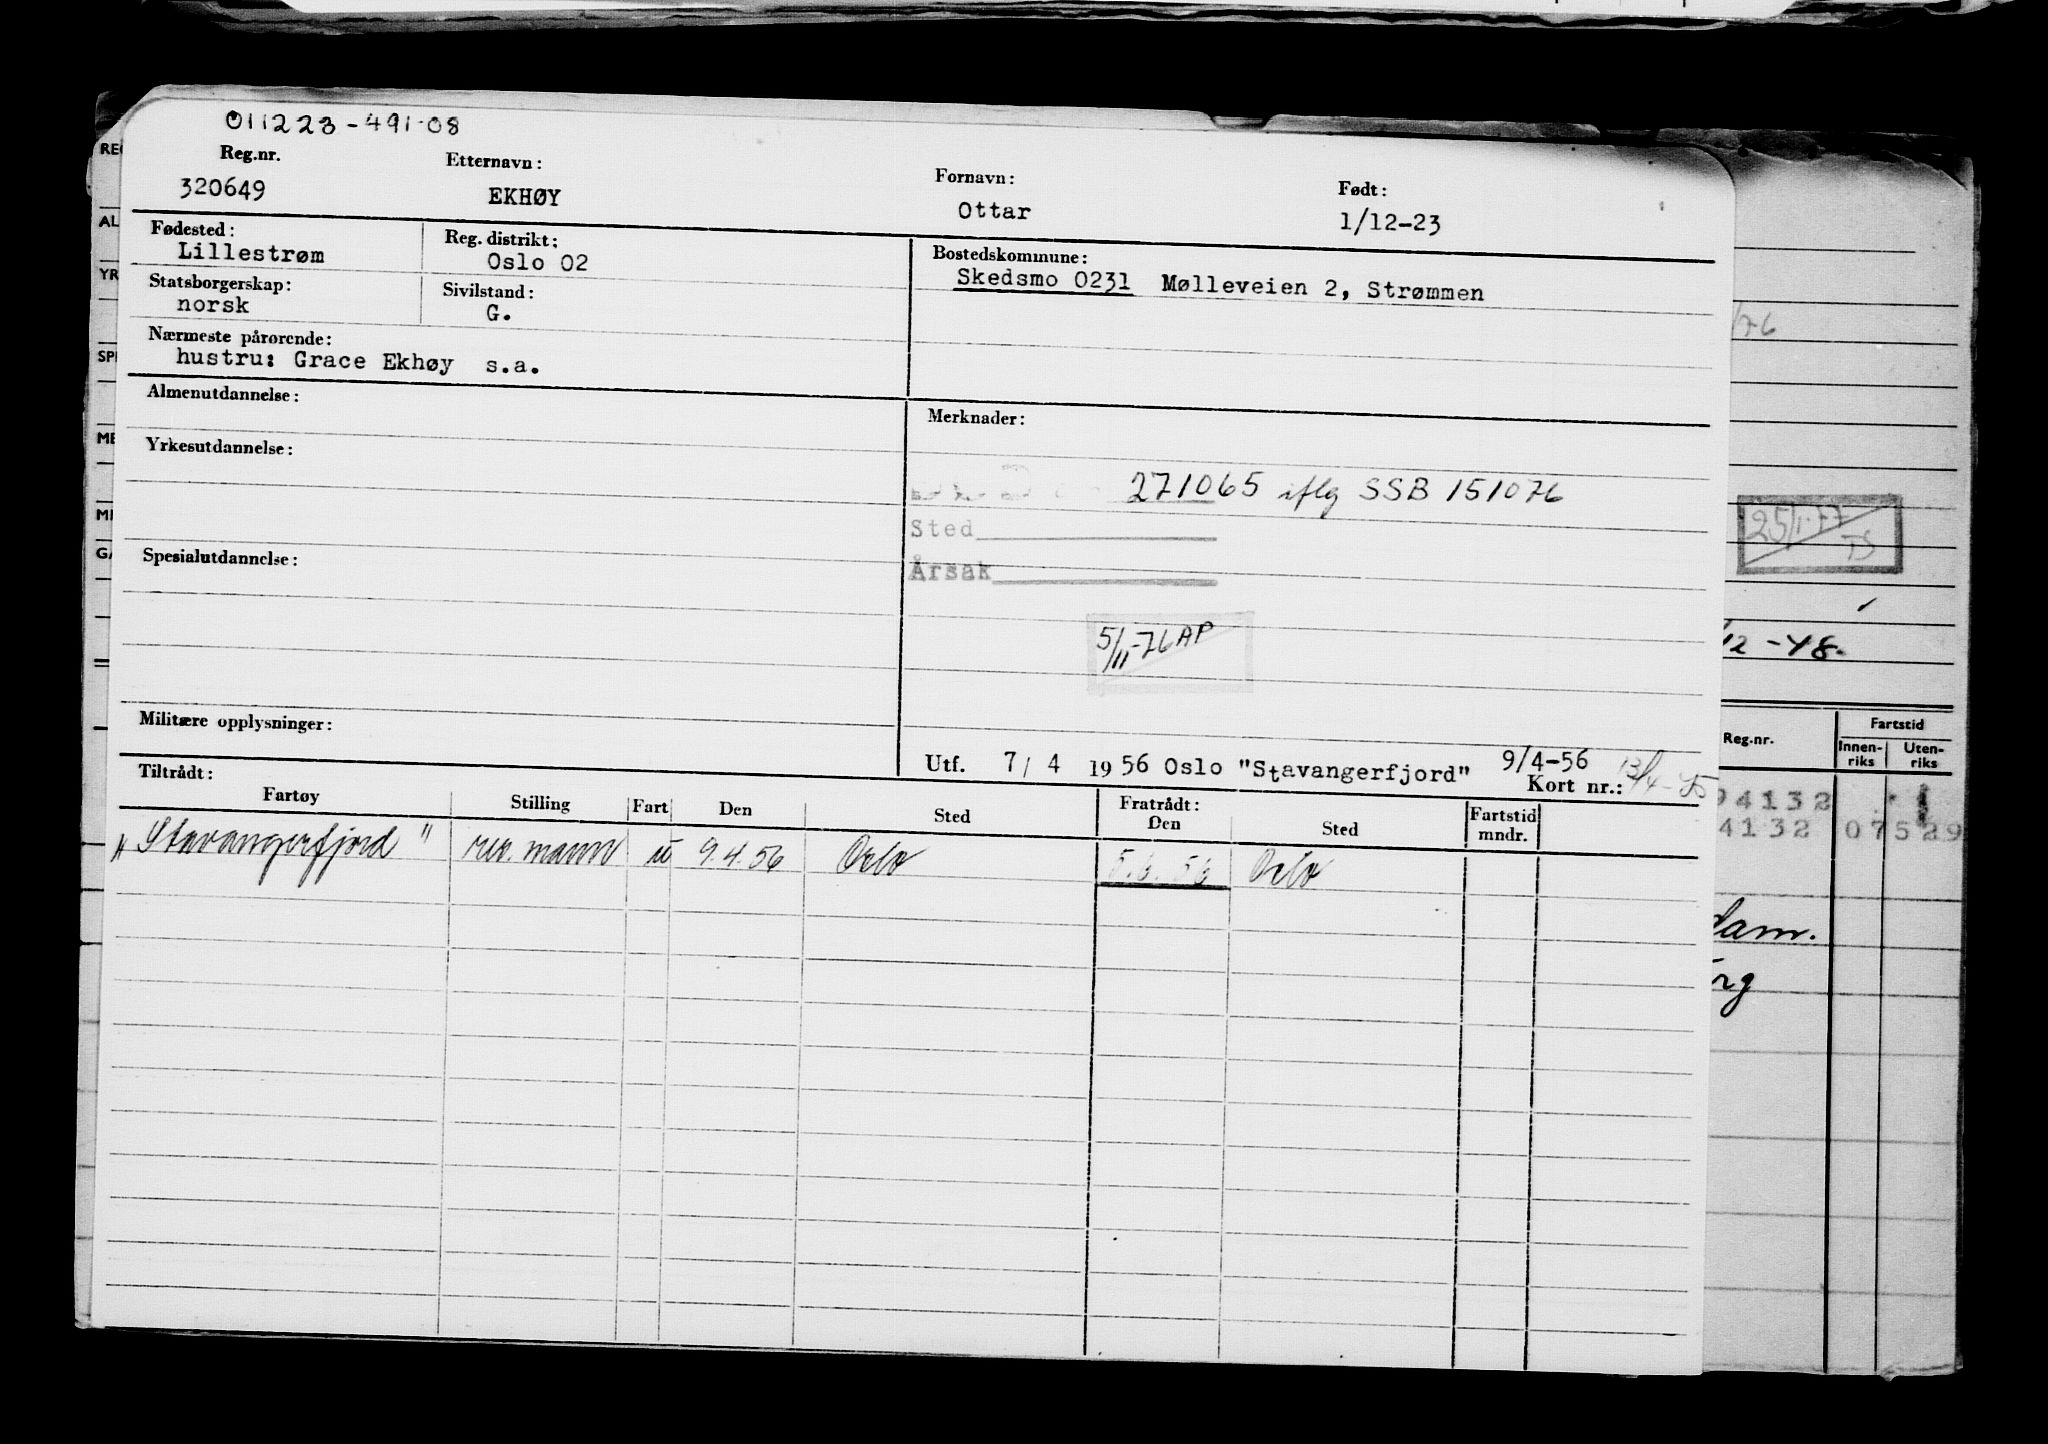 011223-491-08
Reg.nr. Etternavn: Fornavn: Født:
320649 EKHØY Ottar 1/12-23
Fødested: Reg. distrikt: Bostedskommune:
Lillestrøm Oslo 02 Skedsmo 0231 Mølleveien 2, Strømmen
Statsborgerskap: Sivilstand:
norsk G.
Nærmeste pårørende:
hustru: Grace Ekhøy s.a.
Almenutdannelse: Merknader:
Yrkesutdannelse:
271065 iflg SSB 151076
Sted
Spesialutdannelse: Årsak
5/11-76 AP
Militære opplysninger:
Utf. 7/4 1956 Oslo "Stavangerfjord" 9/4-56
Kort nr.:
Tiltrådt: Fratrådt:
Fartøy Stilling Fart Den Sted Den Sted Fartstid mndr.
"Stavangerfjord" rep. mann u 9.4.56 Oslo 5.6.56 Oslo
REG
AL
YR
SPE
ME
MI
GA
/76
25/1-77
TS
/12-48.
Reg.nr. Fartstid
Innen-riks Uten-riks
94132
4132 07529
dam.
rg